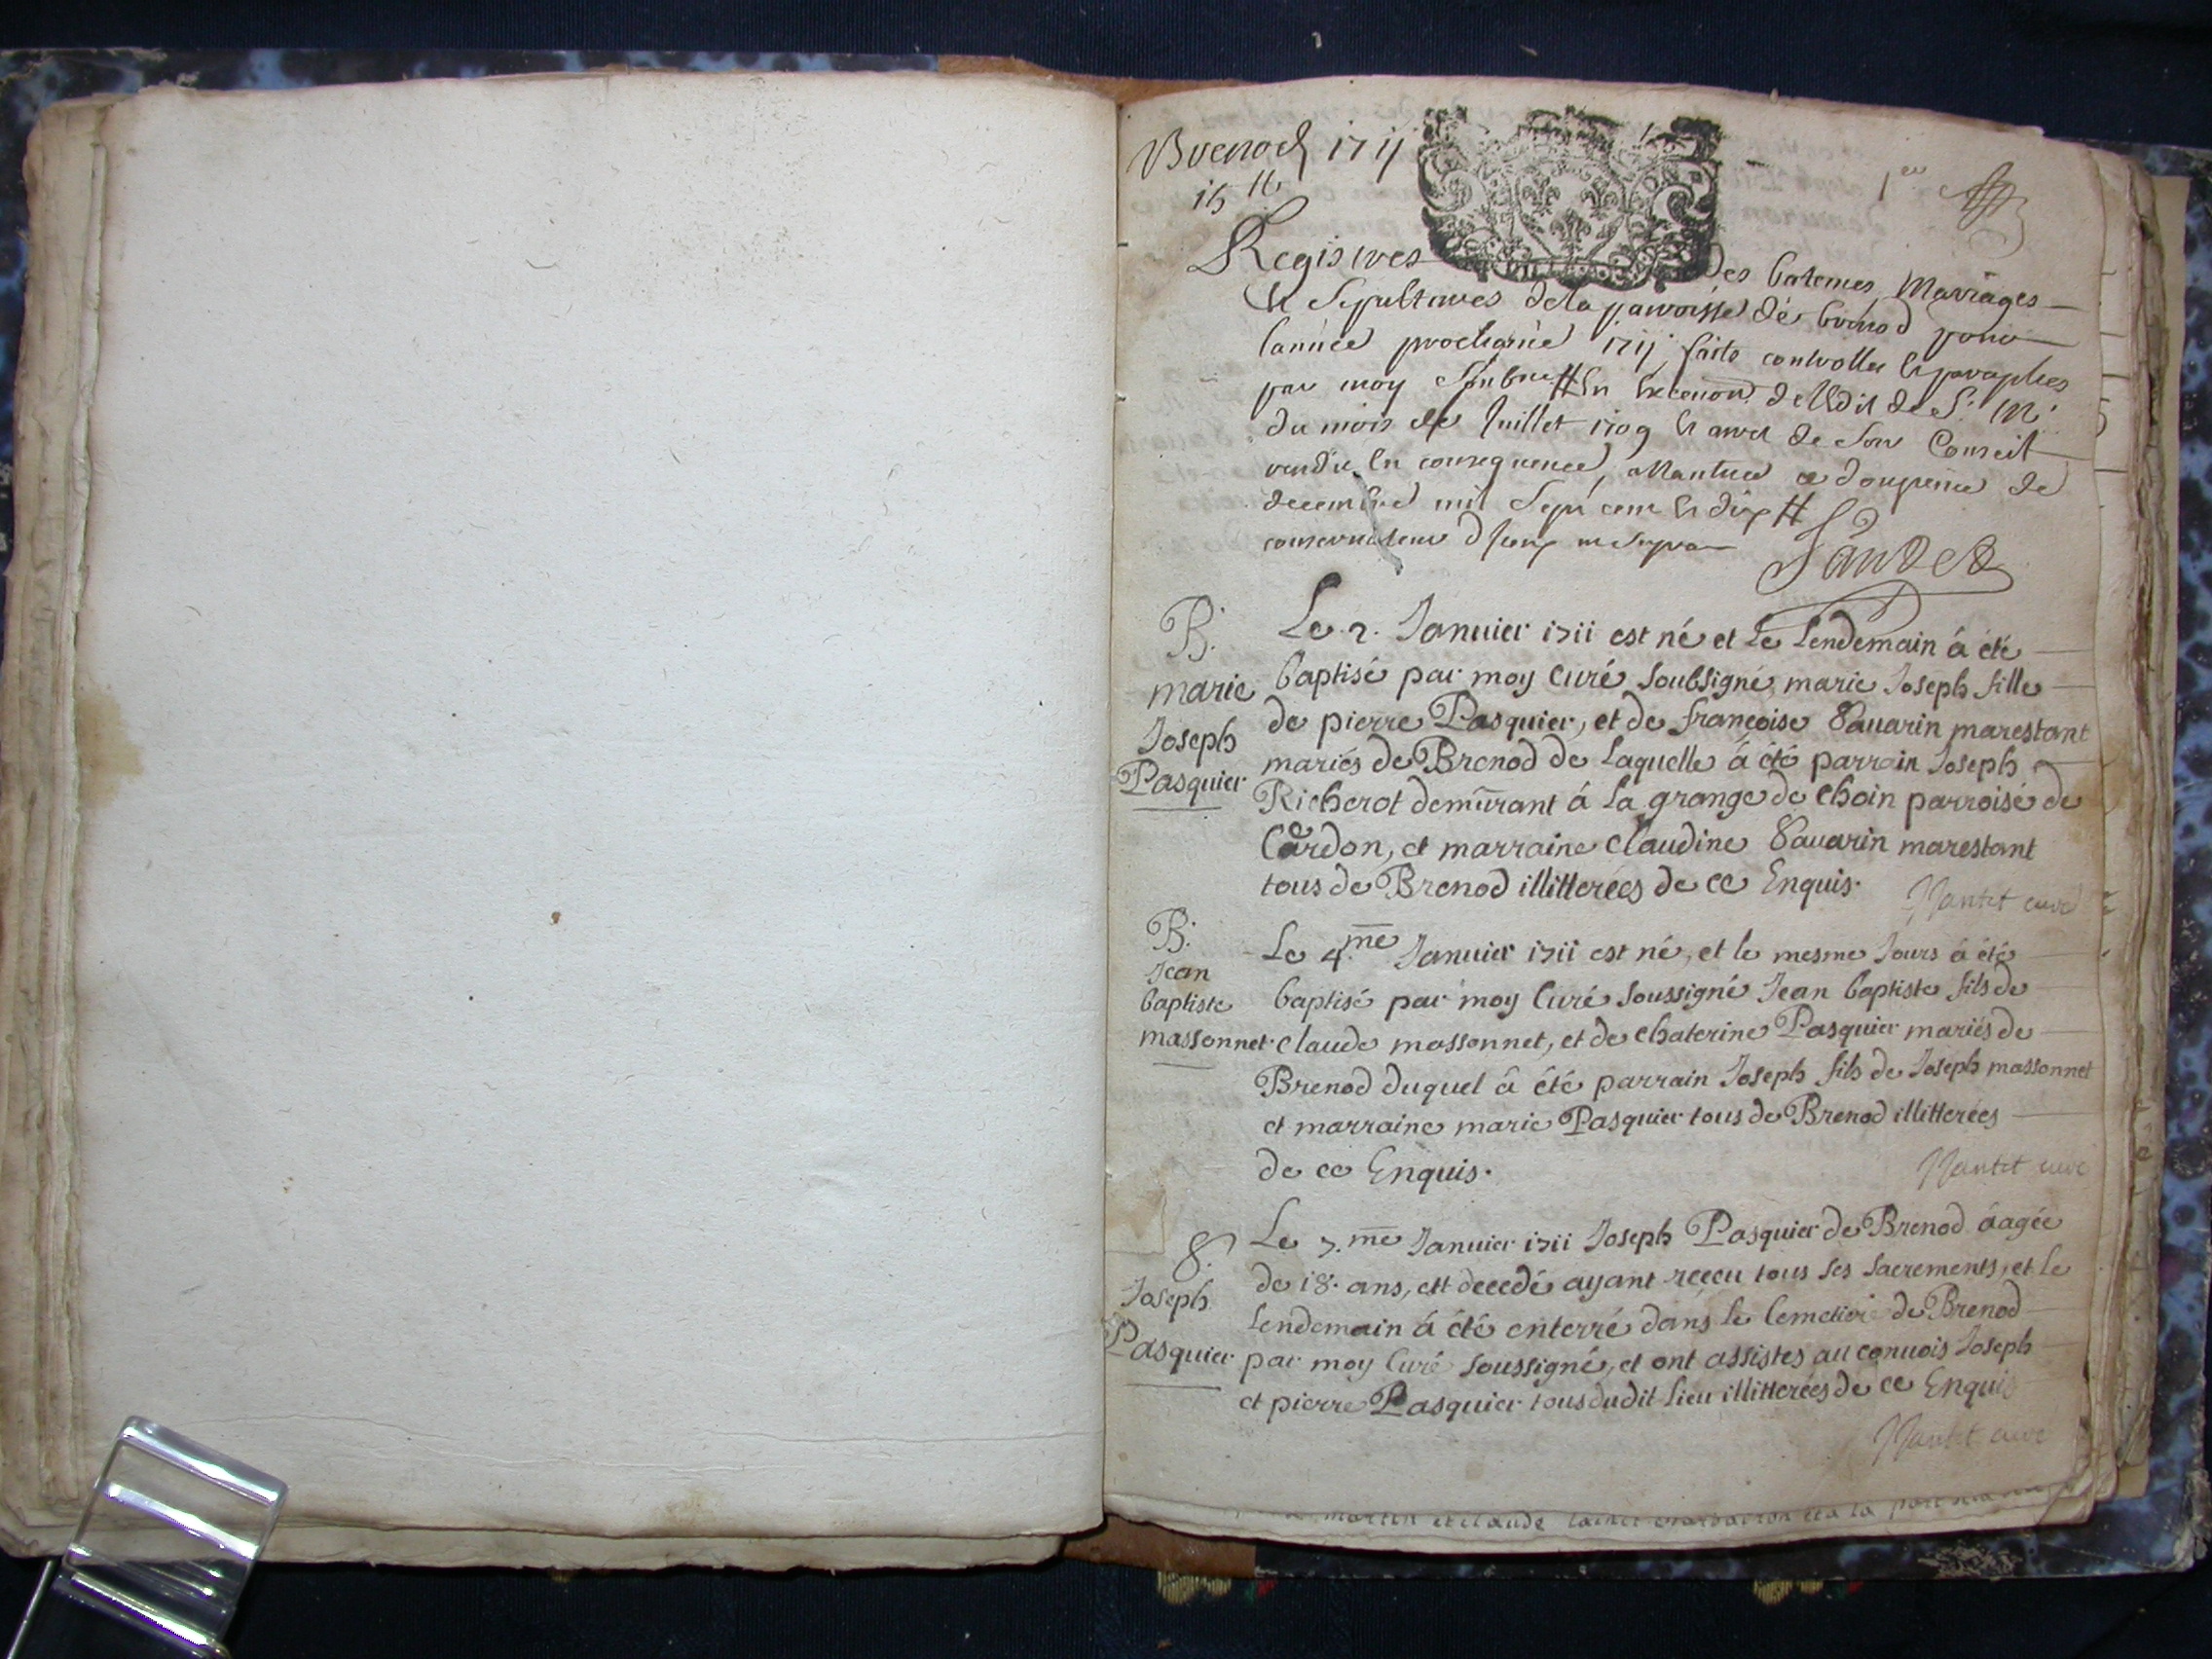 Brenod 1711
1er
Registres des batemes Mariages
Et Sepultures de la parroisse de brenod pour
lannée prochaine 1711 faite controller et paraphes
par moy En Execuon de l'Edit de S. M.
du mois de Juillet 1709 et arret de son Conseil
rendu En consequence, a Nantua ce de
decembre mil Sept cent et dix
B.
marie
Joseph
Pasquier
Le 2. Januier 1711 est né et Le Lendemain á été
baptisé par moy Curé soubsigné marie Joseph fille
de pierre Pasquier, et de françoise Sauarin marestant
mariés de Brenod de Laquelle á été parrain Joseph
Richerot demurant á La grange de Choin parroisé de
Cordon, et marraine Claudine Sauarin marestant
tous de Brenod illitterées de ce Enquis.
Nantet curé
B.
Jean
baptiste
massonnet
Le 4.me Januier 1711 est né, et le mesme Jours á été
baptisé par moy Curé soussigné Jean baptiste fils de
claude massonnet, et de chaterine Pasquier mariés de
Brenod duquel á été parrain Joseph fils de Joseph massonnet
et marraine marie Pasquier tous de Brenod illitterées
de ce Enquis.
Nantet curé
S.
Joseph
Pasquier
Le 7.me Januier 1711 Joseph Pasquier de Brenod áagée
de 18. ans, est decedé ayant receu tous ses sacrements, et le
Lendemain á été enterré dans le Cemetiere de Brenod
par moy Curé soussigné, et ont assistes au conuois Joseph
et pierre Pasquier tous dudit Lieu illitterées de ce Enquis
Nantet curé
martin et claude